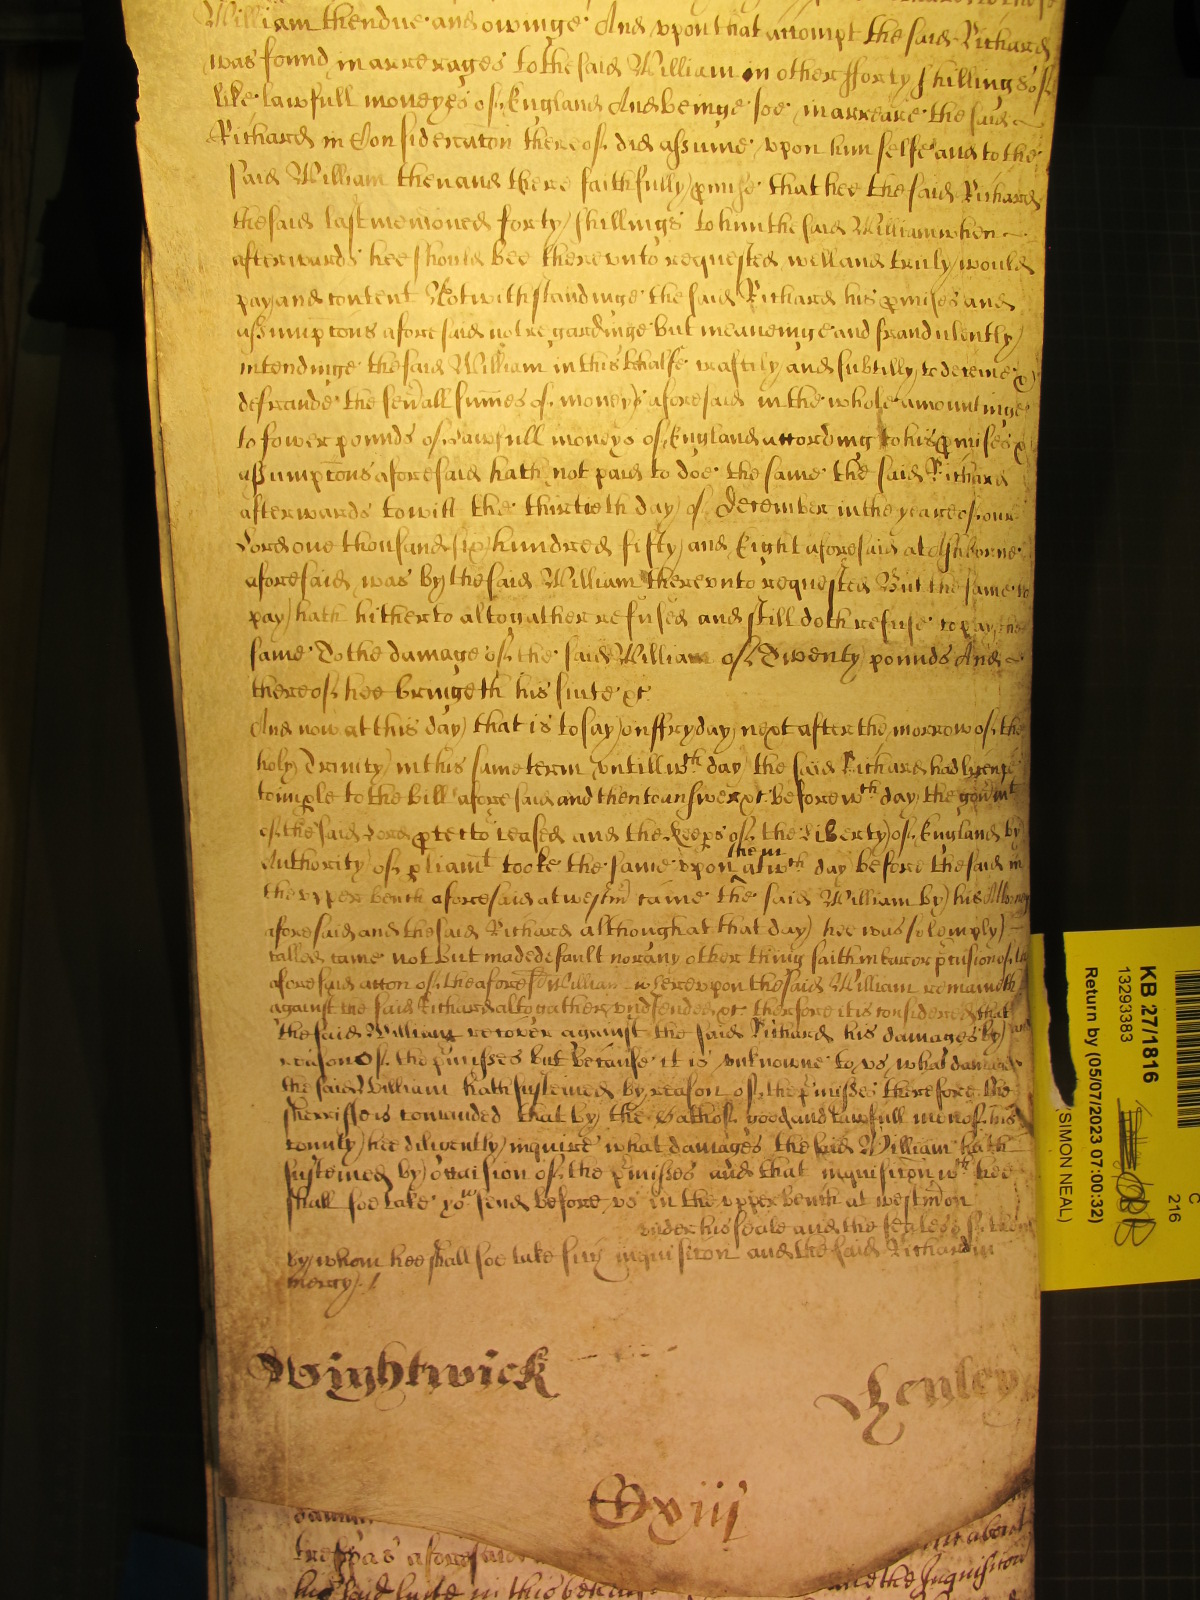 William then due and owinge And vpon that accompt the said Richard
was found in arrerages to the said William in other fforty shillings of
like lawfull moneyes of England And beinge soe in arreare the said
Richard in Consideracon thereof did assume vpon him selfe and to the
said William then and there faithfully pmise that hee the said Richard
the said last mencioned forty shillings to him the said William when
afterwards hee should bee therevnto requested well and truly would
pay and content Notwithstandinge the said Richard his pmises and
assumpcons aforesaid not regardinge but meaneinge and fraudulently
intendinge the said William in this behalfe craftily and subtilly to deceive &
defraude the seuall summes of moneys aforesaid in the whole amountinge
to fower pounds of Lawfull moneys of England according to his pmises &
assumpcons aforesaid hath not paid to doe the same the said Richard
afterwards to witt the thirtieth day of December in the yeare of our
Lord one thousand six hundred fifty and Eight aforesaid at Ashborne
aforesaid was by the said William therevnto requested But the same to
pay hath hitherto altogather refused and still doth refuse to pay the
same To the damage of the said William of Twenty pounds And
thereof hee bringeth his suite &c
And now at this day that is to say on ffryday next after the morrow of the
holy Trinity in this same terme vntill wch day the said Richard had lycence
to imple to the Bill aforesaid and then to answer &c before wch day the goumt
of the said Lord ptector ceased and the Keeps of the Liberty of England by
Authority of pliamt tooke the same vpon them at wch day before the said in
the vpper bench aforesaid at westm came the said William by his Attorney
aforesaid and the said Richard although at that day hee was solemply
called came not but made default nor any other thing saith in barr or pclusion of the
aforesaid accon of the aforesd William wherevpon the said William remaineth
against the said Richard altogather vndefended &c therefore it is considered that
the said William recover against the said Richard his damages by
reason of the pmisses but because it is vnknowne to vs what damages
the said William hath susteined by reason of the pmisses therefore the
sherriffe is comanded that by the Oathes of good and lawfull men of his
county hee diligently inquire what damages the said William hath
susteined by occasion of the pmisses and that inquisicon wch hee
shall soe take &c send before vs in the vpper bench at westm on
vnder his seale and the seales of them
by whom hee shall soe take such inquisicon and the said Richard in
mercy /
Wightwick
Henley
Cxiij
trespas aforesaid
and the Inquisicon
his said suite in this
KB 27/1816
13293383
Return by (05/07/2023 07:00:32)
(SIMON NEAL)
C
216